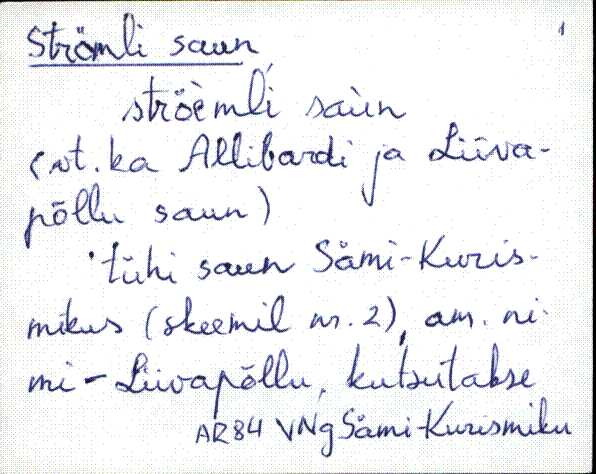 1
Strömli saun,
ströèmli saùn
(vt. ka Allibardi ja Liiva-
põllu saun)
tühi saun Sämi-Kuris-
mikus (skeemil nr. 2), am. ni-
mi - Liivapõllu, kutsutakse
AR84 VNg Sämi-Kurismiku